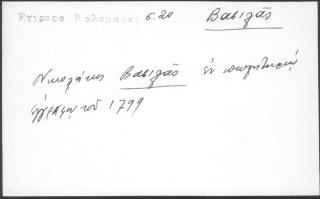 Έγγραφα Καλαμάτας 6.20 Βασιλᾶς
Νικολάκης Βασιλᾶς ἐν
ἐγγράφῳ τοῦ 1799